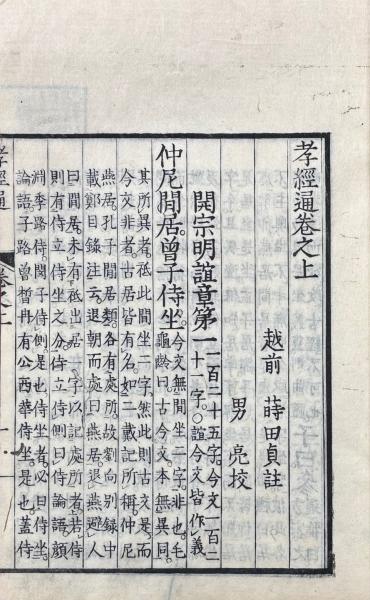 孝經通卷之上
越前 蒔田貞註
男 亮校
開宗明誼章第一 一百二十五字。今文一百二
十一字。○誼今文皆作義
仲尼閒居。曾子侍坐。今文無閒坐二字非也。毛
龜齡曰古今文本無異同。
其所異者。祗此閒坐二字。然此則古文是。而
今文非者。古居皆有名。如二戴記所稱仲尼
燕居。孔子閒居類。各有處所。故劉向别錄中
載鄭目錄注云。退朝而處曰燕居。退燕避人
曰閒居。未有祗出居一字以記處所者。若侍
則有侍立侍坐之分。侍立侍側曰侍。論語。顏
淵季路侍。閔子侍側。是也。侍坐者必曰侍坐。
論語子路曾晳冉有公西華侍坐。是也。蓋侍
孝經通
卷之上